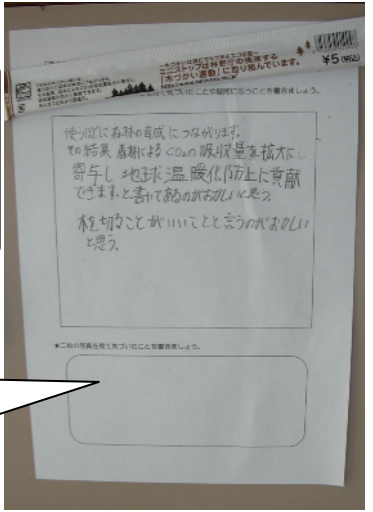 ミニストップは林野庁の推進する
「木づかい運動」に取り組んでいます。
¥5(税込)
気づいたことや疑問に思うことを書きましょう。
使うほどに森林の育成につながります。
その結果 森林によるCO₂の吸収量を拡大に
寄与し 地球温暖化防止に貢献
できます。と書いてあるのがおかしいと思う。
木を切ることがいいことと言うのがおかしい
と思う。
★二枚の写真を見て気づいたことを書きましょう。